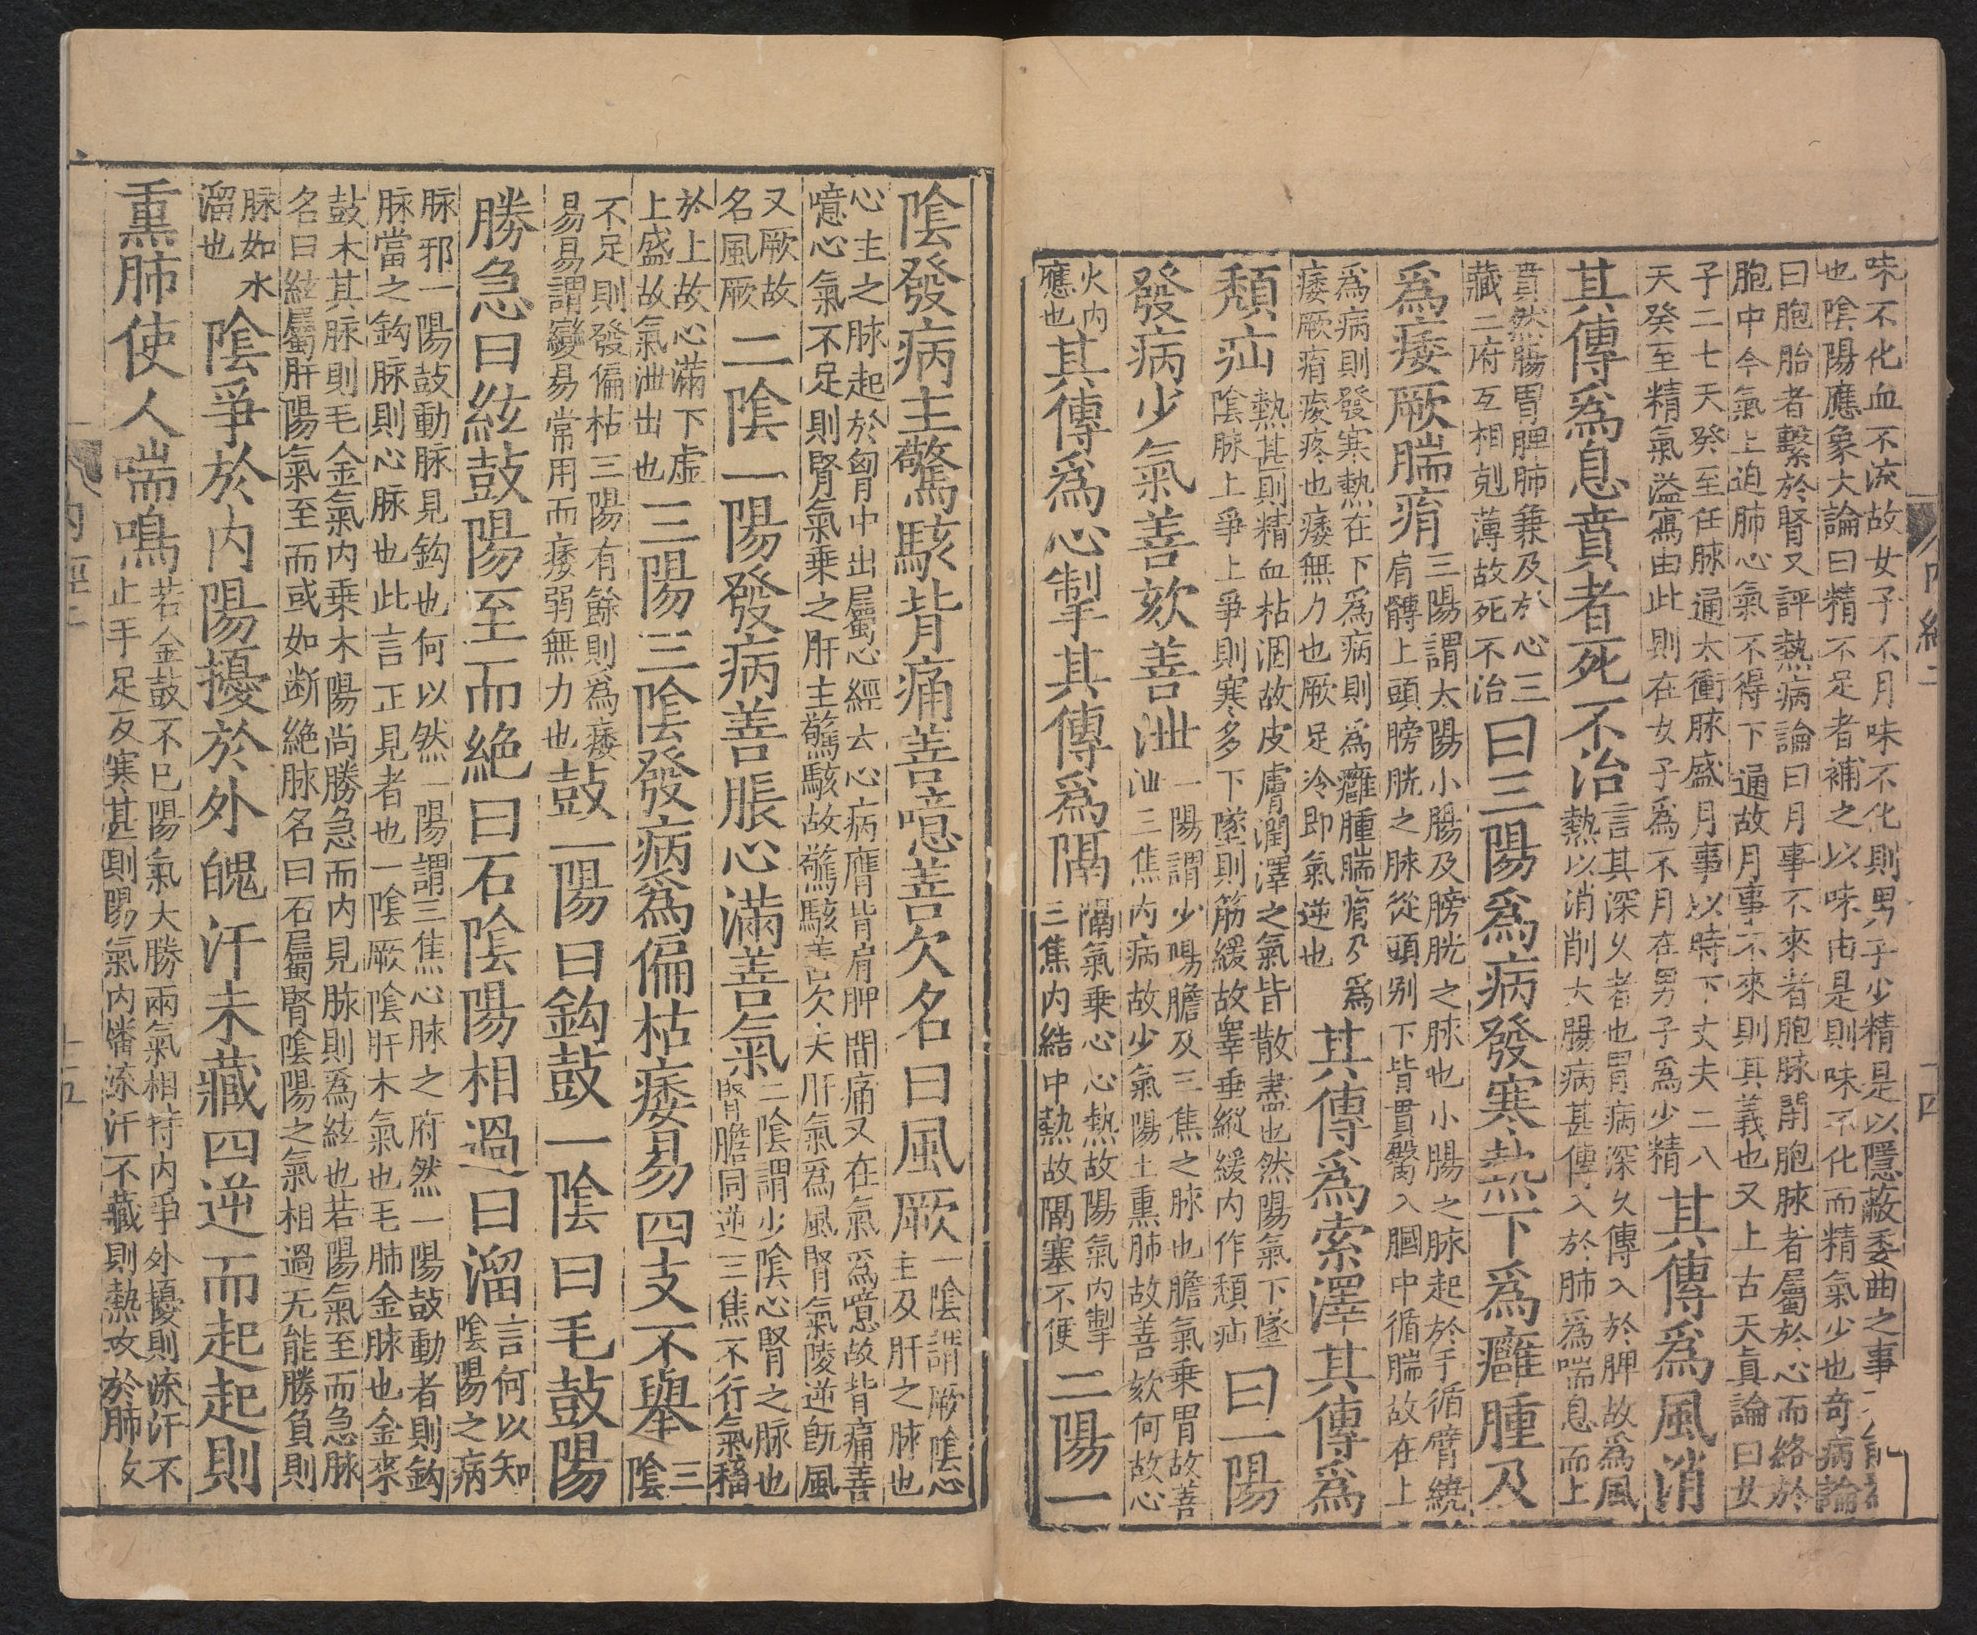 味不化血不流故女子不月味不化則男子少精是以隱蔽委曲之事
也陰陽應象大論曰精不足者補之以味由是則味不化而精氣少也奇病論
曰胞胎者繫於腎又評熱病論曰月事不來者胞脉閉胞脉者屬於心而絡於
胞中今氣上迫肺心氣不得下通故月事不來則其義也又上古天真論曰女
子二七天癸至任脉通太衝脉盛月事以時下丈夫二八
天癸至精氣溢寫由此則在女子爲不月在男子爲少精
其傳爲風消
其傳爲息賁者死不治
言其深久者也胃病深久傳入於脾故爲風
熱以消削大腸病甚傳入於肺爲喘息而上
賁然腸胃脾肺兼及於心三
藏二府互相剋薄故死不治
曰三陽爲病發寒熱下爲癰腫及
爲痿厥腨㾓
三陽謂太陽小腸及膀胱之脉也小腸之脉起於手循臂繞
肩髆上頭膀胱之脉從頭别下皆貫臀入膕中循腨故在上
爲病則發寒熱在下爲病則爲癰腫腨㾓乃爲
痿厥㾓痠疼也痿無力也厥足冷即氣逆也
其傳爲索澤其傳爲
頹疝
熱甚則精血枯涸故皮膚潤澤之氣皆散盡也然陽氣下墜
陰脉上爭上爭則寒多下墜則筋緩故睪垂縱緩内作頹疝
曰一陽
發病少氣善欬善泄
一陽謂少陽膽及三焦之脉也膽氣乗胃故善
泄三焦内病故少氣陽土熏肺故善欬何故心
火内
應也
其傳爲心掣其傳爲隔
隔氣乗心心熱故陽氣内掣
三焦内結中熱故隔塞不便
二陽一
内經二
十四
陰發病主驚駭背痛善噫善欠名曰風厥
一陰謂厥陰心
主及肝之脉也
心主之脉起於胷中出屬心經云心病膺背肩胛間痛又在氣爲噫故背痛善
噫心氣不足則腎氣乗之肝主驚駭故驚駭善欠夫肝氣爲風腎氣陵逆既風
又厥故
名風厥
二陰一陽發病善脹心滿善氣
二陰謂少陰心腎之脉也
腎膽同逆三焦不行氣稸
於上故心滿下虛
上盛故氣泄出也
三陽三陰發病爲偏枯痿易四支不舉
三
陰
不足則發偏枯三陽有餘則爲痿
易易謂變易常用而痿弱無力也
鼓一陽曰鈎鼓一陰曰毛鼓陽
勝急曰絃鼓陽至而絶曰石陰陽相過曰溜
言何以知
陰陽之病
脉邪一陽鼓動脉見鈎也何以然一陽謂三焦心脉之府然一陽鼓動者則鈎
脉當之鈎脉則心脉也此言正見者也一陰厥陰肝木氣也毛肺金脉也金來
鼓木其脉則毛金氣内乗木陽尚勝急而内見脉則爲絃也若陽氣至而急脉
名曰絃屬肝陽氣至而或如断絶脉名曰石屬腎陰陽之氣相過无能勝負則
脉如水
溜也
陰爭於内陽擾於外魄汗未藏四逆而起起則
熏肺使人喘鳴
若金鼓不已陽氣大勝兩氣相持内爭外擾則流汗不
止手足反寒甚則陽氣内燔流汗不藏則熱攻於肺故
内經二
十五